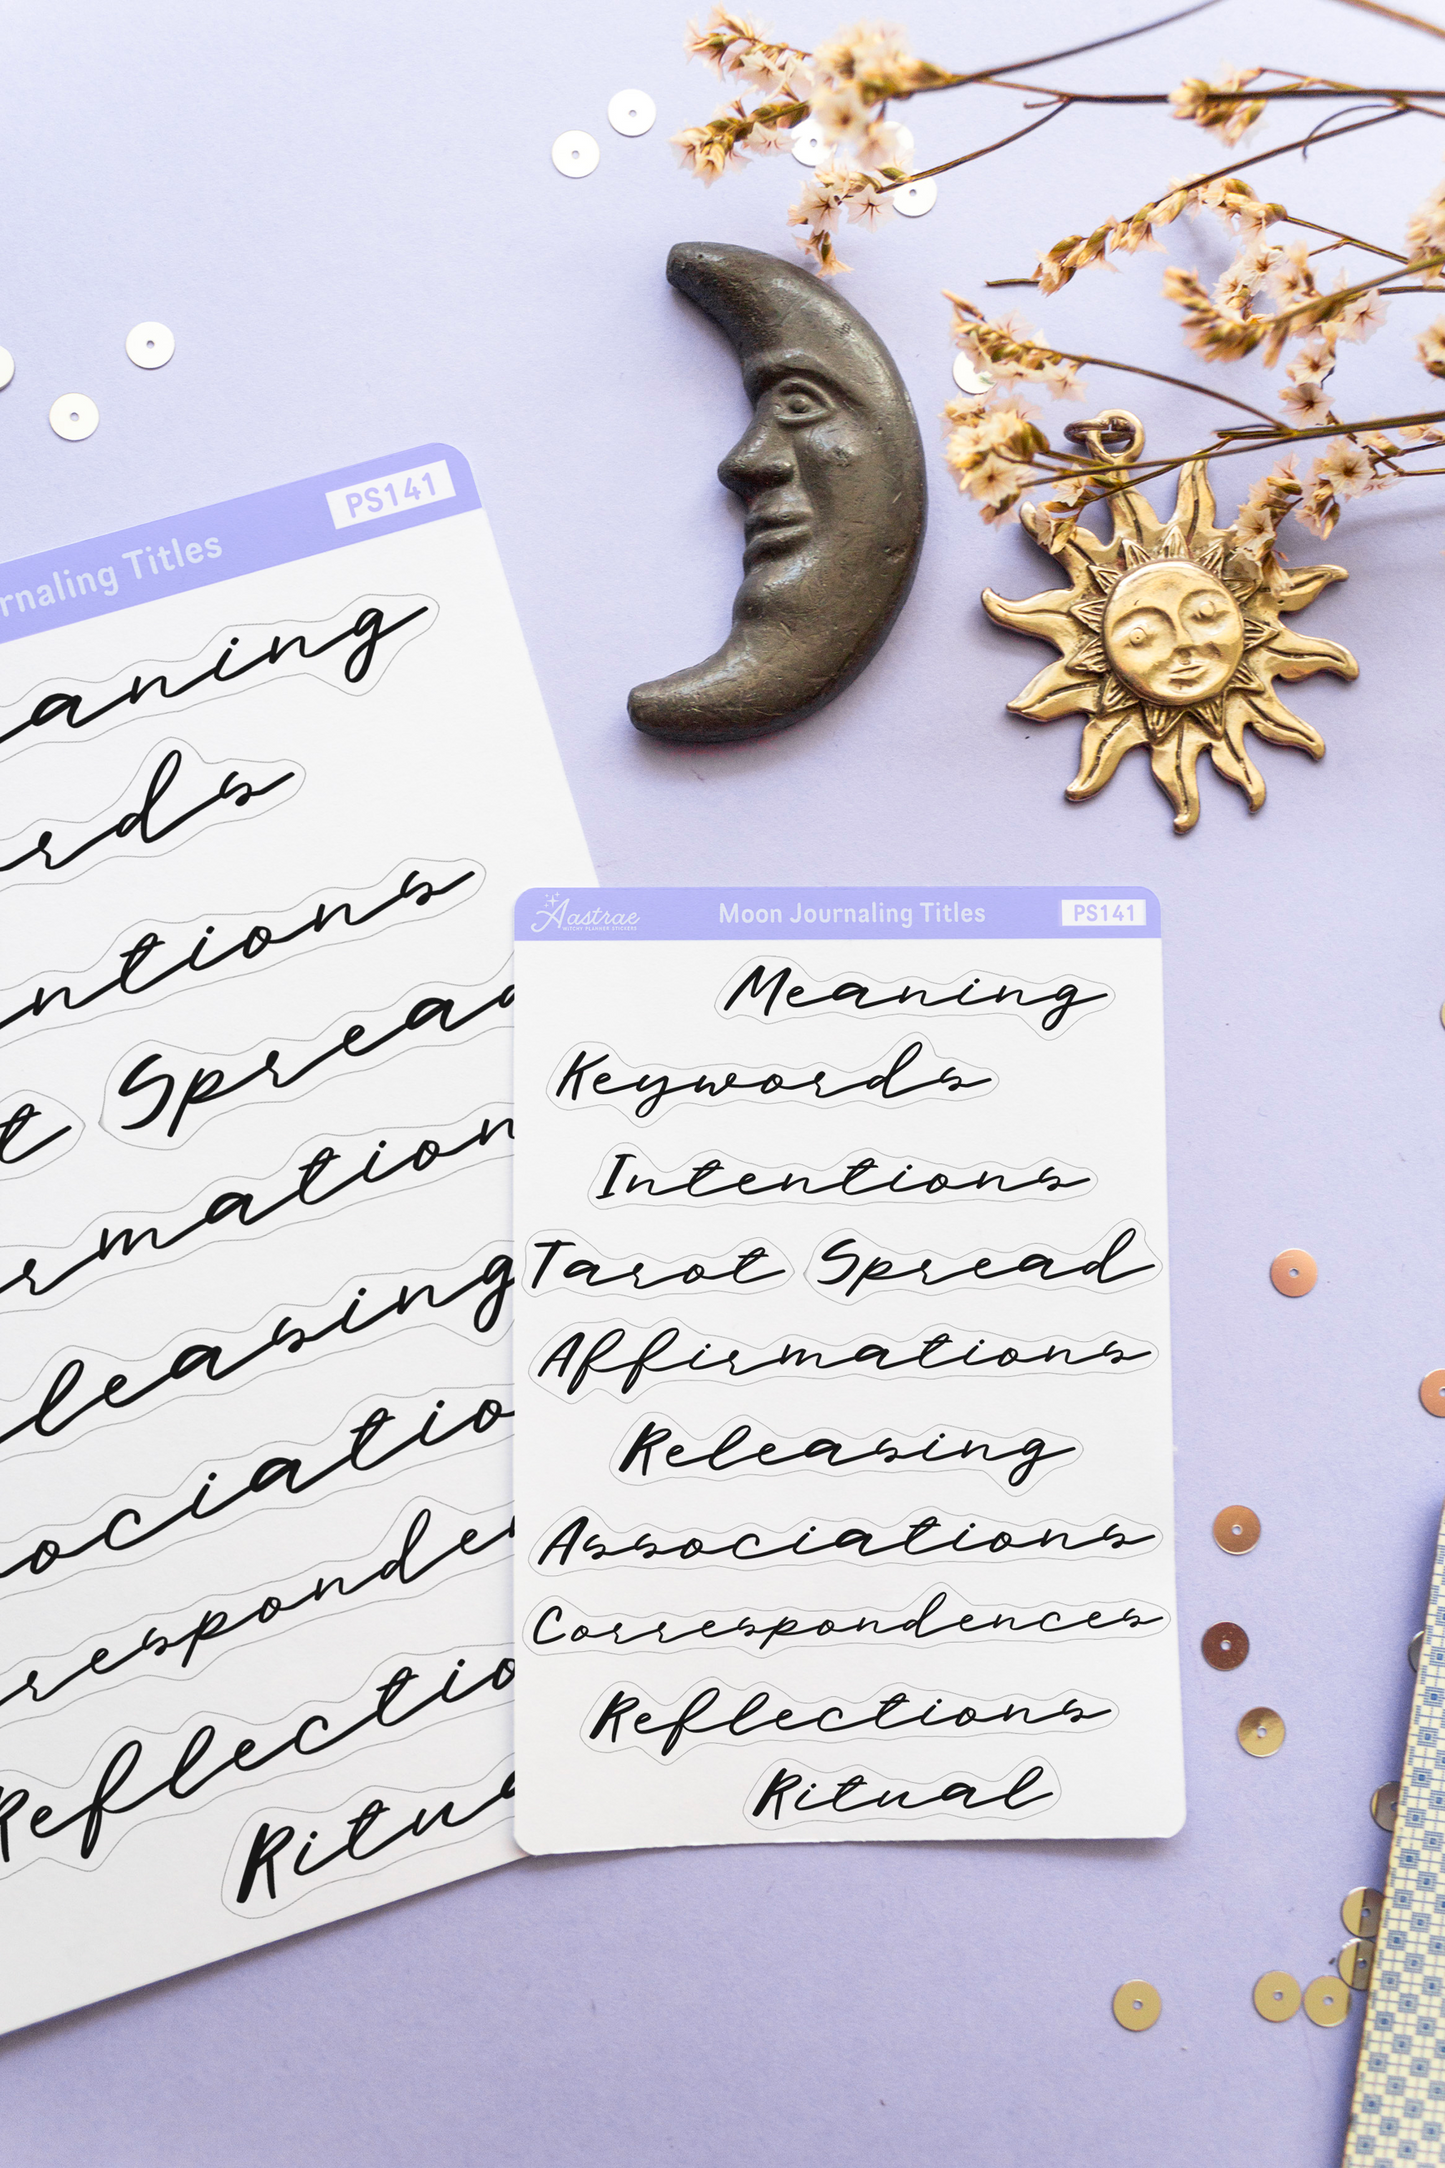 PS141
rnaling Titles
aning
rds
ntions
t Spread
rmation
leasing
ociatio
responde
Reflectio
Ritua
Aastrae
WITCHY PLANNER STICKERS
Moon Journaling Titles
PS141
Meaning
Keywords
Intentions
Tarot Spread
Affirmations
Releasing
Associations
Correspondences
Reflections
Ritual